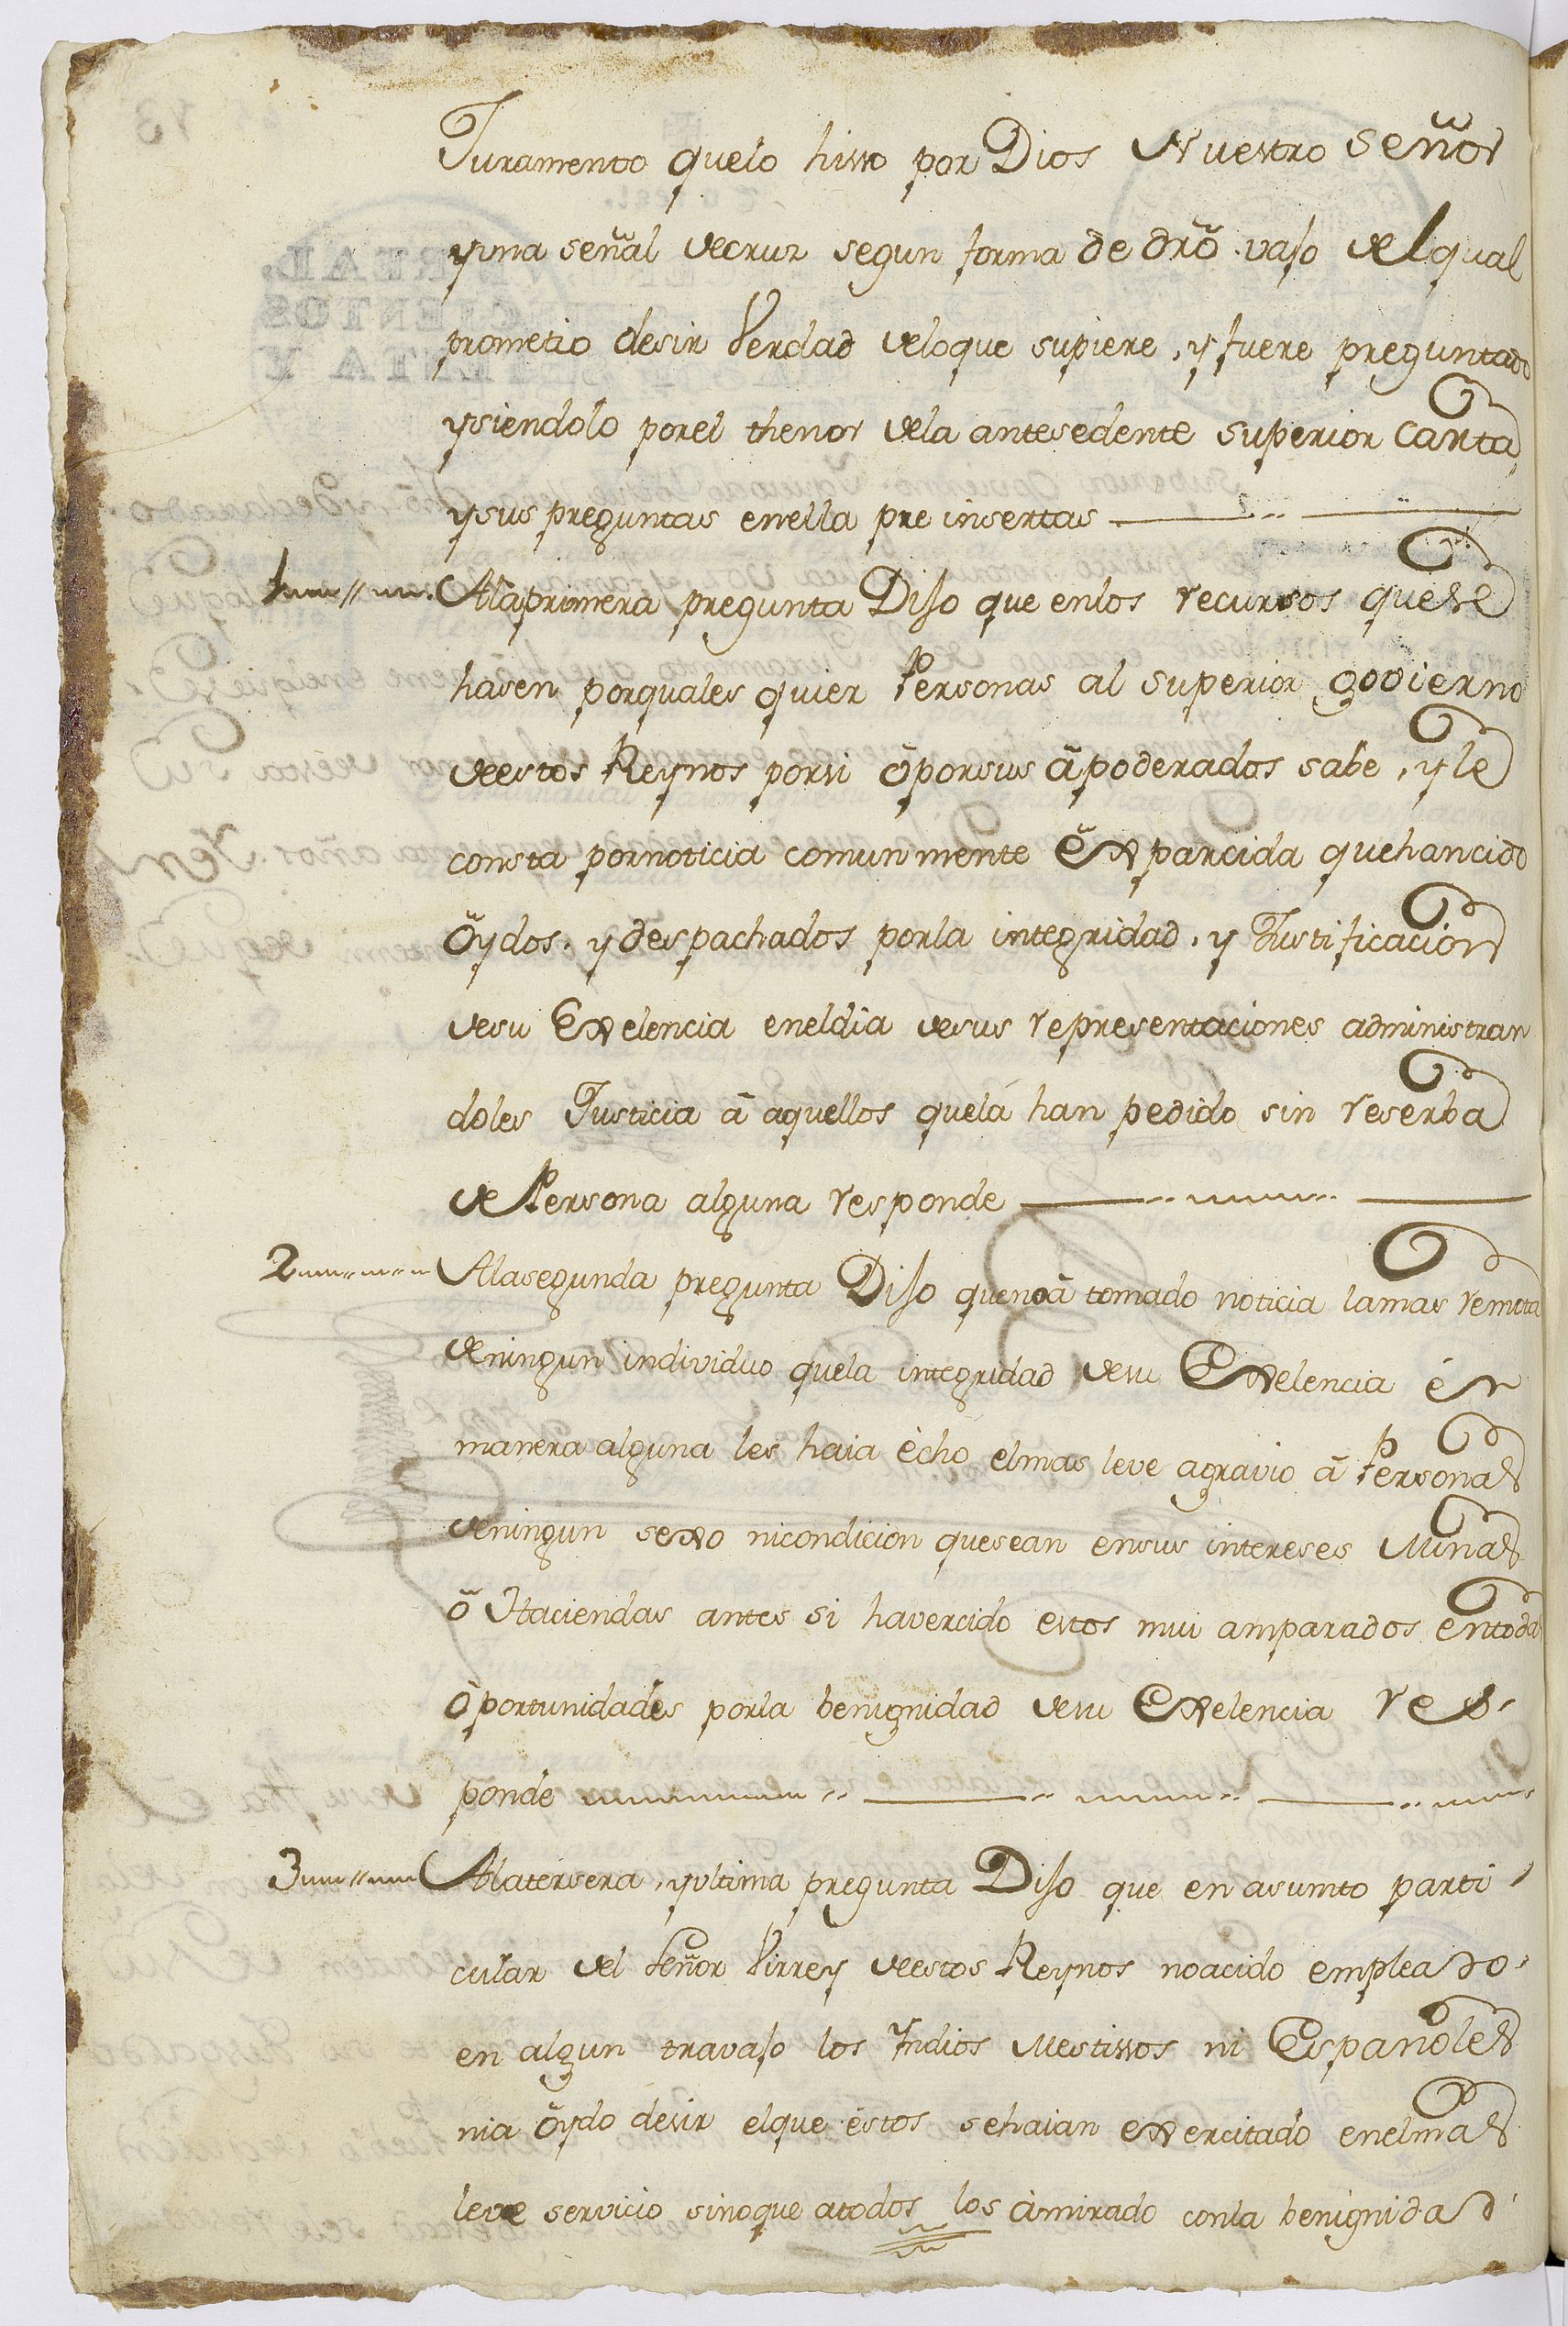 Juramento quelo hisso por Dios Nuestro Señor
yuna señal decruz segun forma de drõ. vajo del qual
prometio desir Verdad deloque supiere, y fuere preguntado
ysiendolo porel thenor dela antesedente superior Carta
ysus preguntas enella pre insertas
1 Alaprimera pregunta Dijo que enlos recursos quese
hasen porquales quier Personas al superior govierno
deestos Reynos porsi õ porsus ãpoderados sabe, yle
consta pornoticia comunmente exparcida quehancido
õydos, y despachados porla integridad, y Justificacion
desu Exelencia eneldia desus representaciones administran
doles Justicia ã aquellos quelá han pedido sin reserba
de Persona alguna responde
2 Alasegunda pregunta Dijo quenoã tomado noticia lamas remota
deningun individuo quela integridad desu Exelencia én
manera alguna les haia ècho elmas leve agravio ã Personas
deningun sexo nicondicion quesean ensus intereses Minas
õ Haciendas antes si havercido estos mui amparados entodas
òportunidades porla benignidad desu Exelencia res-
ponde
3 Alatersera, yvltima pregunta Dijo que en asumto parti
cular del Señor Virrey deestos Reynos noacido empleado
en algun travajo los Yndios Mestissos ni Españoles
nia õydo desir elque èstos sehaian exercitado enelmas
leve servicio sinoque atodos los àmirado conla benignidad